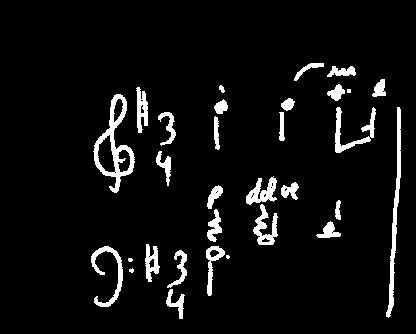 3
4
p dolce
3
4